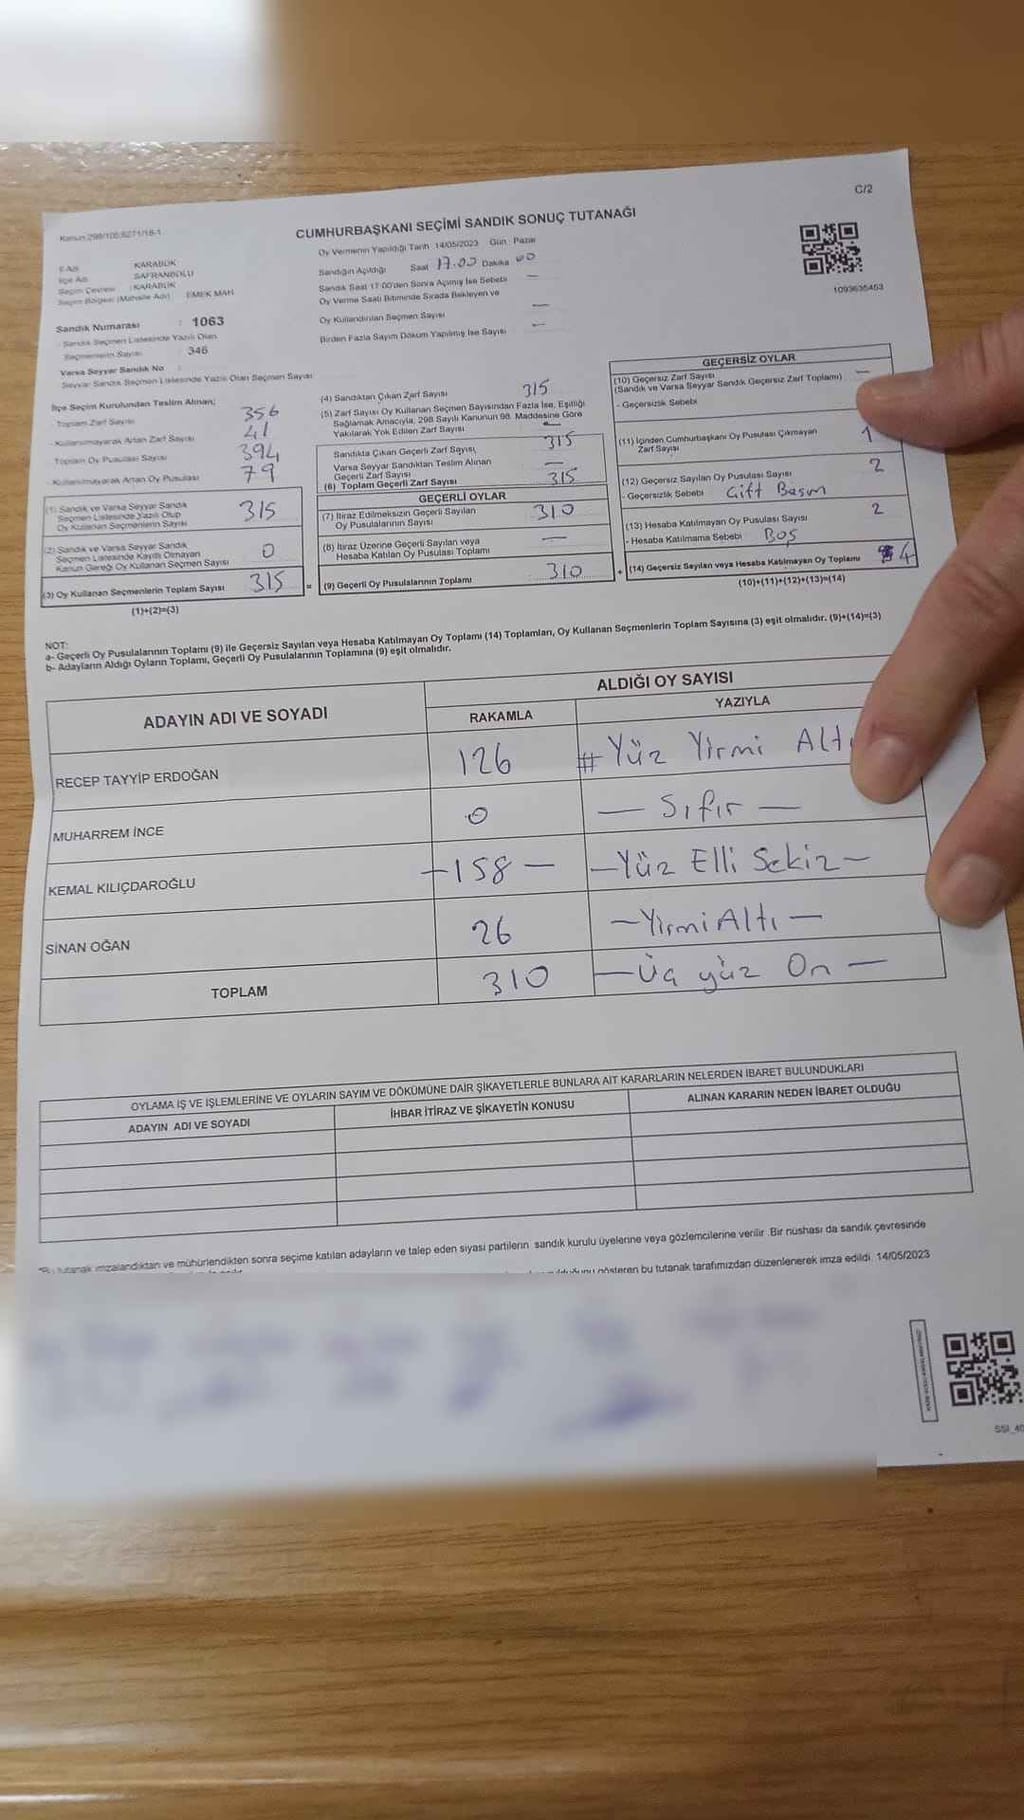 C/2
Kanun:298/105;6271/18-1
CUMHURBAŞKANI SEÇİMİ SANDIK SONUÇ TUTANAĞI
İl Adı KARABÜK
İlçe Adı SAFRANBOLU
Seçim Çevresi : KARABÜK
Seçim Bölgesi (Mahalle Adı) EMEK MAH.
Sandık Numarası : 1063
Sandık Seçmen Listesinde Yazılı Olan
Seçmenlerin Sayısı 346
Varsa Seyyar Sandık No
Seyyar Sandık Seçmen Listesinde Yazılı Olan Seçmen Sayısı
Oy Vermenin Yapıldığı Tarih 14/05/2023 Gün : Pazar
Sandığın Açıldığı Saat 17.00 Dakika 00
Sandık Saat 17:00'den Sonra Açılmış İse Sebebi —
Oy Verme Saati Bitiminde Sırada Bekleyen ve
Oy Kullandırılan Seçmen Sayısı —
Birden Fazla Sayım Döküm Yapılmış İse Sayısı —
1093635453
İlçe Seçim Kurulundan Teslim Alınan;
Toplam Zarf Sayısı 356
- Kullanılmayarak Artan Zarf Sayısı 41
Toplam Oy Pusulası Sayısı 394
- Kullanılmayarak Artan Oy Pusulası 79
(1) Sandık ve Varsa Seyyar Sandık
Seçmen Listesinde Yazılı Olup
Oy Kullanan Seçmenlerin Sayısı 315
(2) Sandık ve Varsa Seyyar Sandık
Seçmen Listesinde Kayıtlı Olmayan
Kanun Gereği Oy Kullanan Seçmen Sayısı 0
(3) Oy Kullanan Seçmenlerin Toplam Sayısı 315 =
(1)+(2)=(3)
(4) Sandıktan Çıkan Zarf Sayısı 315
(5) Zarf Sayısı Oy Kullanan Seçmen Sayısından Fazla İse, Eşitliği
Sağlamak Amacıyla, 298 Sayılı Kanunun 98. Maddesine Göre
Yakılarak Yok Edilen Zarf Sayısı —
Sandıkta Çıkan Geçerli Zarf Sayısı, 315
Varsa Seyyar Sandıktan Teslim Alınan
Geçerli Zarf Sayısı —
(6) Toplam Geçerli Zarf Sayısı 315
GEÇERLİ OYLAR
(7) İtiraz Edilmeksizin Geçerli Sayılan
Oy Pusulalarının Sayısı 310
(8) İtiraz Üzerine Geçerli Sayılan veya
Hesaba Katılan Oy Pusulası Toplamı —
(9) Geçerli Oy Pusulalarının Toplamı 310 +
GEÇERSİZ OYLAR
(10) Geçersiz Zarf Sayısı
(Sandık ve Varsa Seyyar Sandık Geçersiz Zarf Toplamı) —
- Geçersizlik Sebebi
(11) İçinden Cumhurbaşkanı Oy Pusulası Çıkmayan
Zarf Sayısı 1
(12) Geçersiz Sayılan Oy Pusulası Sayısı 2
- Geçersizlik Sebebi Çift Basım
(13) Hesaba Katılmayan Oy Pusulası Sayısı 2
- Hesaba Katılmama Sebebi Boş
(14) Geçersiz Sayılan veya Hesaba Katılmayan Oy Toplamı 4
(10)+(11)+(12)+(13)=(14)
NOT:
a- Geçerli Oy Pusulalarının Toplamı (9) ile Geçersiz Sayılan veya Hesaba Katılmayan Oy Toplamı (14) Toplamları, Oy Kullanan Seçmenlerin Toplam Sayısına (3) eşit olmalıdır. (9)+(14)=(3)
b- Adayların Aldığı Oyların Toplamı, Geçerli Oy Pusulalarının Toplamına (9) eşit olmalıdır.
ADAYIN ADI VE SOYADI
ALDIĞI OY SAYISI
RAKAMLA YAZIYLA
RECEP TAYYİP ERDOĞAN 126 # Yüz Yirmi Altı
MUHARREM İNCE 0 — Sıfır —
KEMAL KILIÇDAROĞLU —158— —Yüz Elli Sekiz—
SİNAN OĞAN 26 —Yirmi Altı—
TOPLAM 310 —Üç yüz On—
OYLAMA İŞ VE İŞLEMLERİNE VE OYLARIN SAYIM VE DÖKÜMÜNE DAİR ŞİKAYETLERLE BUNLARA AİT KARARLARIN NELERDEN İBARET BULUNDUKLARI
ADAYIN ADI VE SOYADI İHBAR İTİRAZ VE ŞİKAYETİN KONUSU ALINAN KARARIN NEDEN İBARET OLDUĞU
"Bu tutanak imzalandıktan ve mühürlendikten sonra seçime katılan adayların ve talep eden siyasi partilerin sandık kurulu üyelerine veya gözlemcilerine verilir. Bir nüshası da sandık çevresinde
gösteren bu tutanak tarafımızdan düzenlenerek imza edildi. 14/05/2023